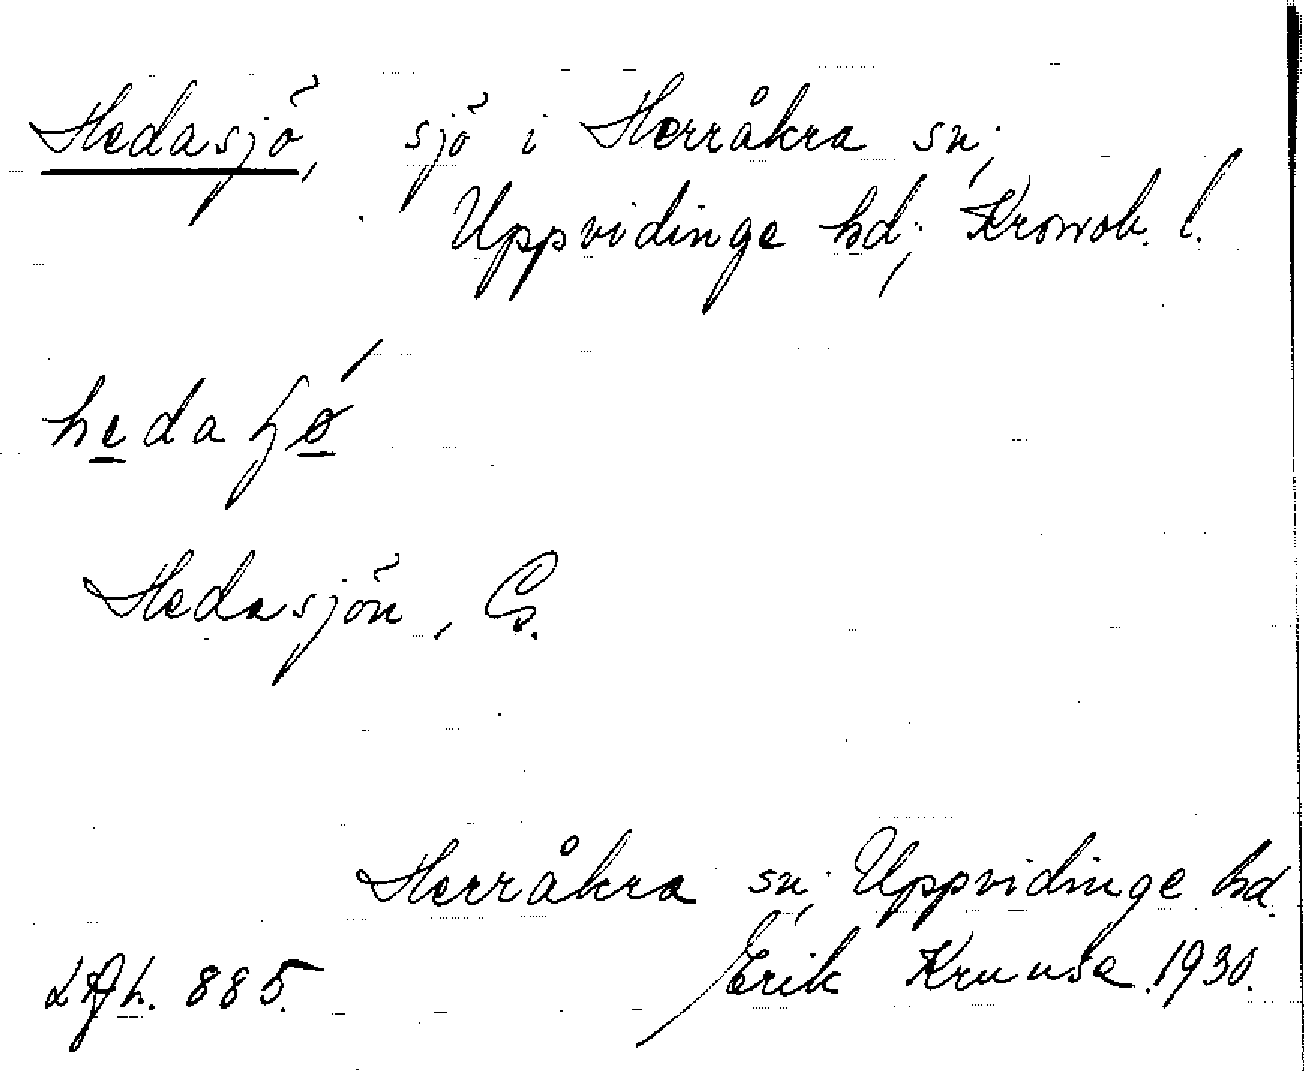 Hedasjö, sjö i Herråkra sn;
Uppvidinge hd; Kronob. l.
Hedasjön, G.
Herråkra sn; Uppvidinge hd.
Erik Kruuse 1930.
885.